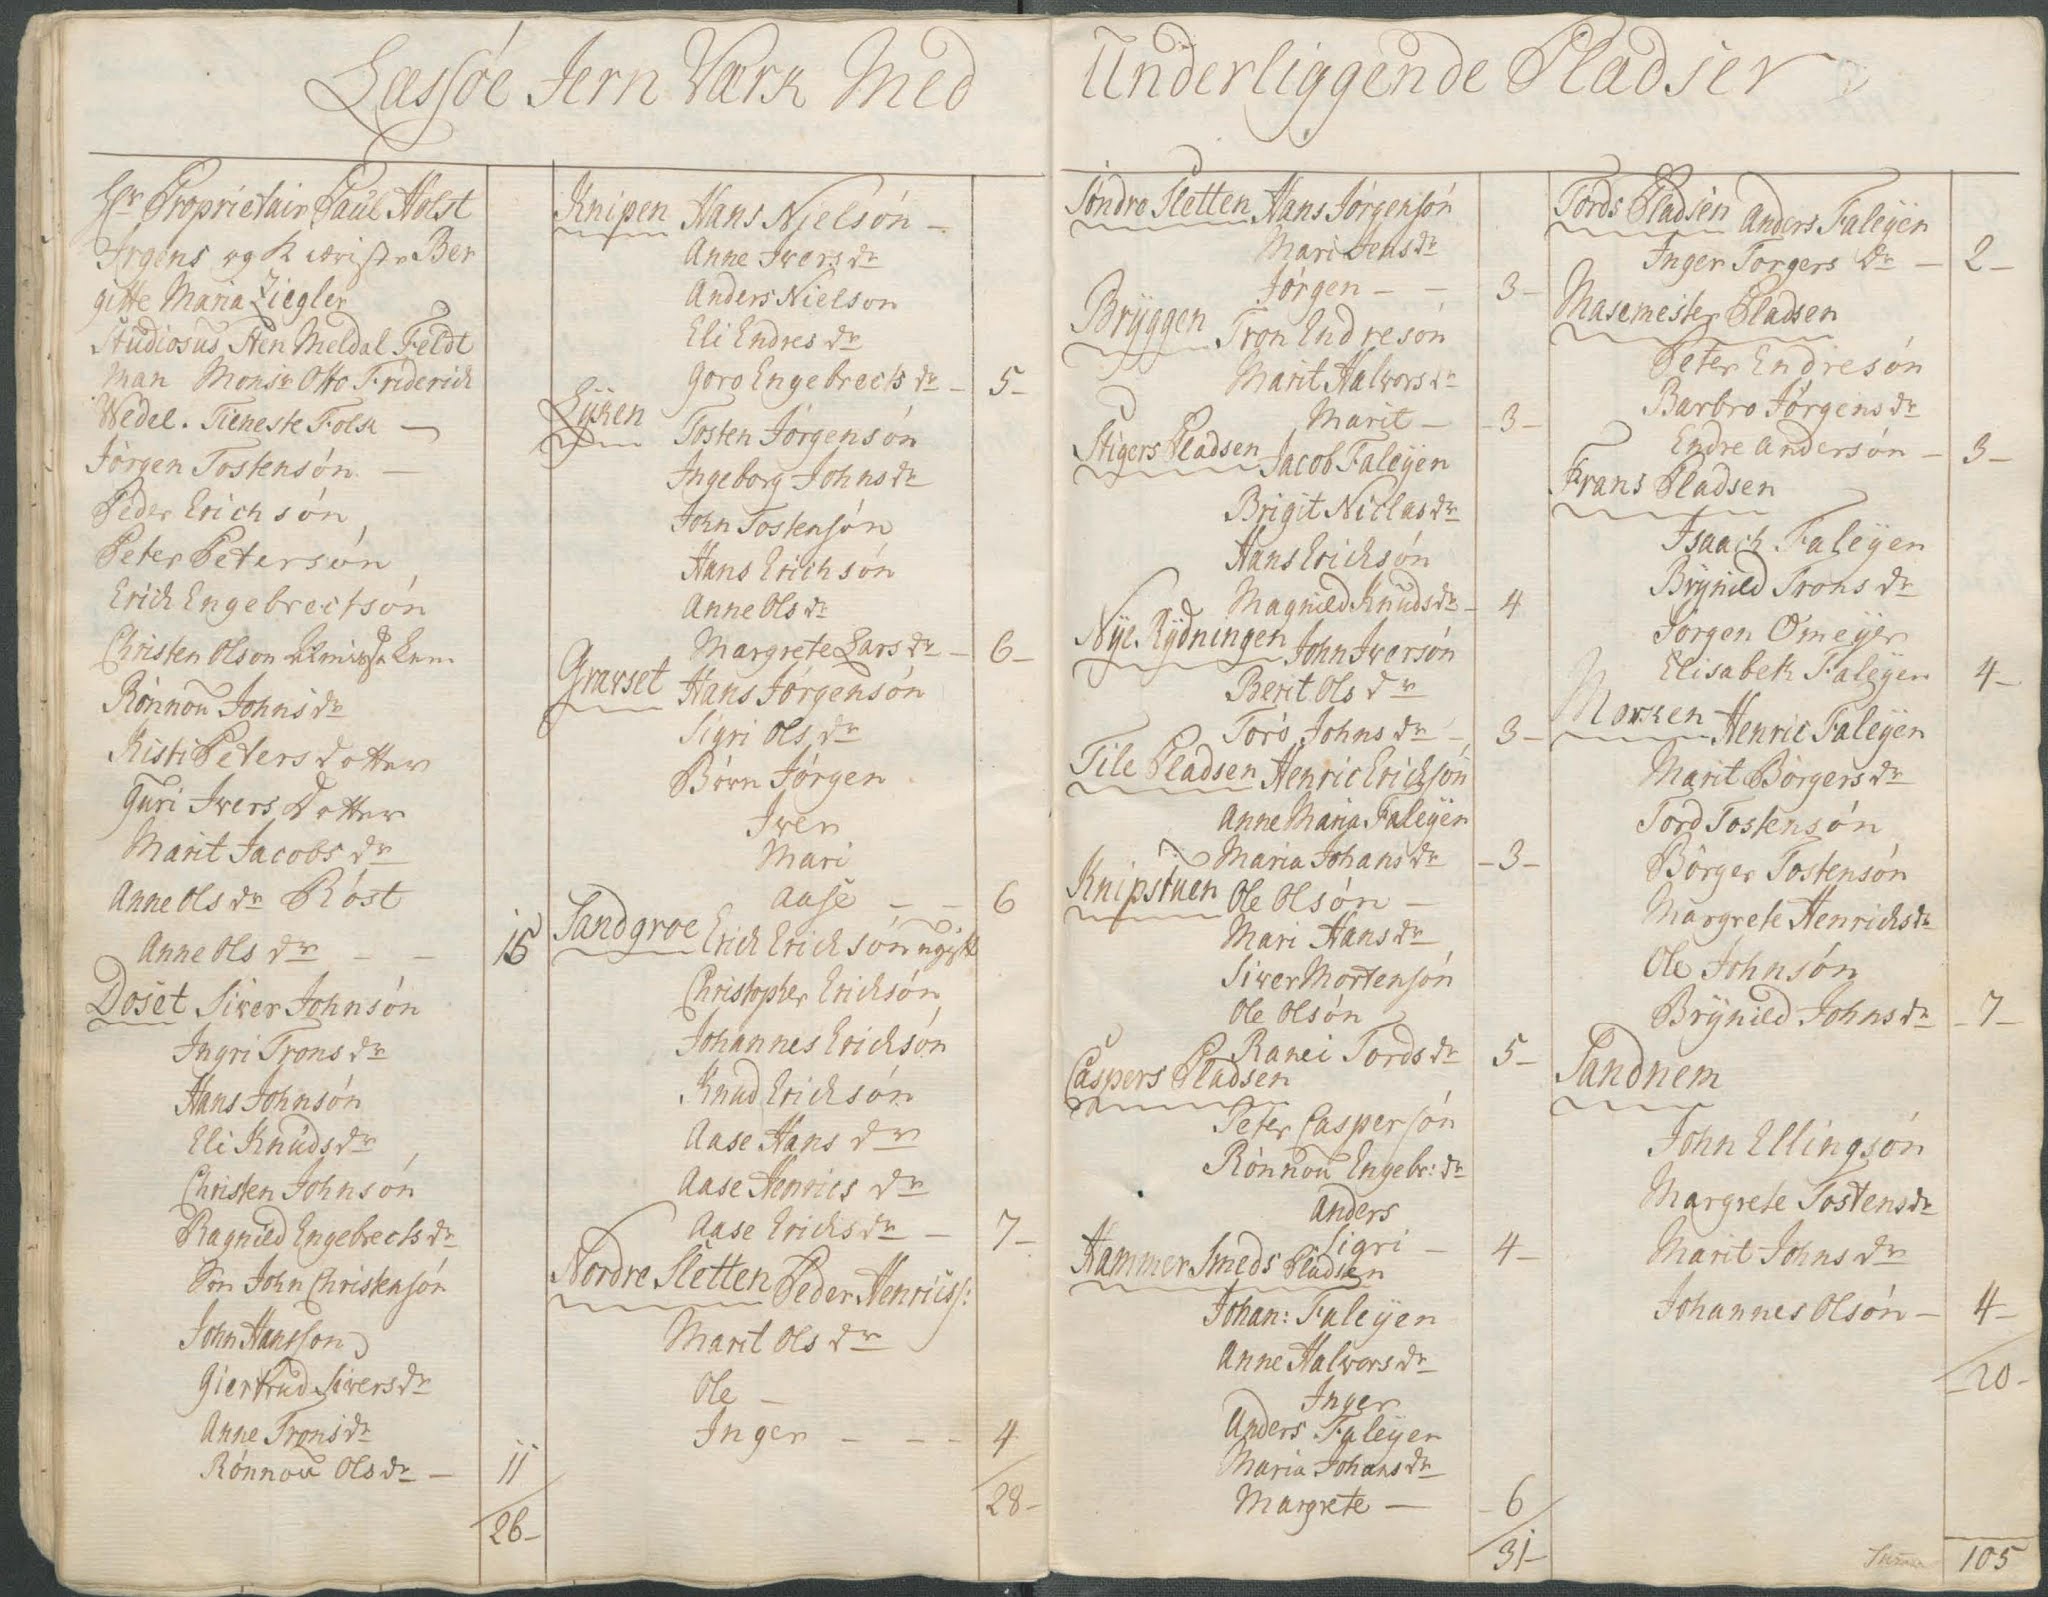 Læssøe Jern Værk Med Underliggende Pladser
Hr Proprietair Paul Holst
Irgens og Kiæriste Ber
gitte Maria Ziegler
Studiosus Sten Meldal Feldt
man Monsr Otto Friderich
Wedel. Tieneste Folk —
Jörgen Tostensón —
Peder Erichsón
Peter Petersón
Erich Engebrectsón
Christen Olson
Rónnou Johns dr
Kisti Peters dotter
Guri Ivers Dotter
Marit Jacobs dr
Anne Ols dr Róst
Anne Ols dr — — 15
Doset Siver Johnsón
Ingri Trons dr
Hans Johnsón
Eli Knuds dr
Christen Johnsón
Ragnild Engebrects dr
Sön John Christensón
John Hansson
Giertrud Sivers dr
Anne Trons dr
Rónnou Ols dr — 11
26—
Knipen Hans Nielsón —
Anne Ivers dr
Anders Nielson
Eli Endres dr
Goro Engebrects dr — 5—
Lyken
Tosten Jórgensón
Ingeborg Johns dr
John Tostensón
Hans Erichsón
Anne Ols dr
Margrete Lars dr — 6—
Gravset Hans Jórgensón
Sigri Ols dr
Bórn Jórgen
Iver
Mari
Aase — — 6
Sandgroe Erich Erichsón ugift
Christopher Erichsón
Johannes Erichsón
Knud Erichsón
Aase Hans dr
Aase Henrics dr
Aase Erichs dr — 7—
Nordre Sletten Peder Henricss:
Marit Ols dr
Ole —
Inger — — — 4
28—
Sóndre Sletten Hans Jórgensón
Mari Jens dr
Jórgen — — 3—
Bryggen Tron Endresón
Marit Halvors dr
Marit — —3—
Stigers Pladsen Jacob Faleyen
Brigit Niclas dr
Hans Erichsón
Magnild Knuds dr — 4
Nye Rydningen John Iversón
Berit Ols dr
Toró Johns dr — 3—
Tile Pladsen Henric Erichsón
Anne Maria Faleyen
Maria Johans dr —3—
Knipstuen Ole Olsón —
Mari Hans dr
Siver Mortensón
Ole Olsón
Ranei Tords dr 5—
Caspers Pladsen
Peter Caspersón
Rónnou Engebr: dr
Anders
Sigri — 4—
Hammer Smeds Pladsen
Johan: Faleyen
Anne Halvors dr
Inger
Anders Faleyen
Maria Johans dr
Margrete — —6
31—
Tords Pladsen Anders Faleyen
Inger Torgers Dr — 2—
Masemester Pladsen
Peter Endresón
Barbro Jórgens dr
Endre Andersón — 3—
Frans Pladsen
Isaach Faleyen
Brynild Trons dr
Jorgen Omeyer
Elisabeth Faleyen 4—
Morken Henric Faleyen
Marit Börgers dr
Tord Tostensón
Börger Tostensón
Margrete Henrichs dr
Ole Johnsón
Brynild Johns dr —7—
Sandnem
John Ellingsón
Margrete Tostens dr
Marit Johns dr
Johannes Olsón — 4—
—20—
Summa 105